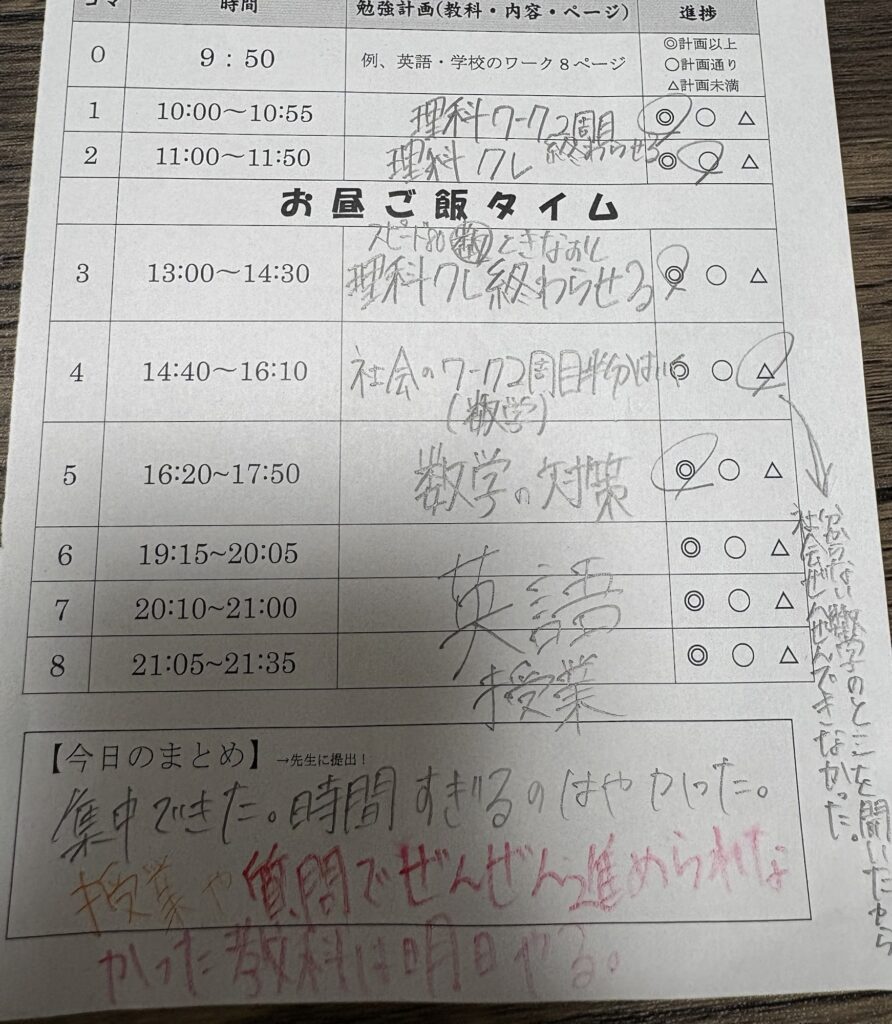 コマ 時間 勉強計画(教科・内容・ページ) 進捗
0 9：50 例、英語・学校のワーク8ページ ◎計画以上
○計画通り
△計画未満
1 10:00〜10:55 理科ワーク2周目 ◎ ○ △
終わらせる
2 11:00〜11:50 理科 クレ ◎ ○ △
お昼ご飯タイム
スピード80 数 ときなおし
3 13:00〜14:30 理科クレ終わらせる ◎ ○ △
4 14:40〜16:10 社会のワーク2周目半分はいく ◎ ○ △
(数学)
5 16:20~17:50 数学の対策 ◎ ○ △
6 19:15~20:05 ◎ ○ △
7 20:10~21:00 英語 ◎ ○ △
8 21:05~21:35 授業 ◎ ○ △
分からない数学のところを聞いたから
社会ぜんぜんできなかった。
【今日のまとめ】→先生に提出！
集中できた。時間すぎるのはやかった。
授業や質問でぜんぜん進められな
かった教科は明日やる。